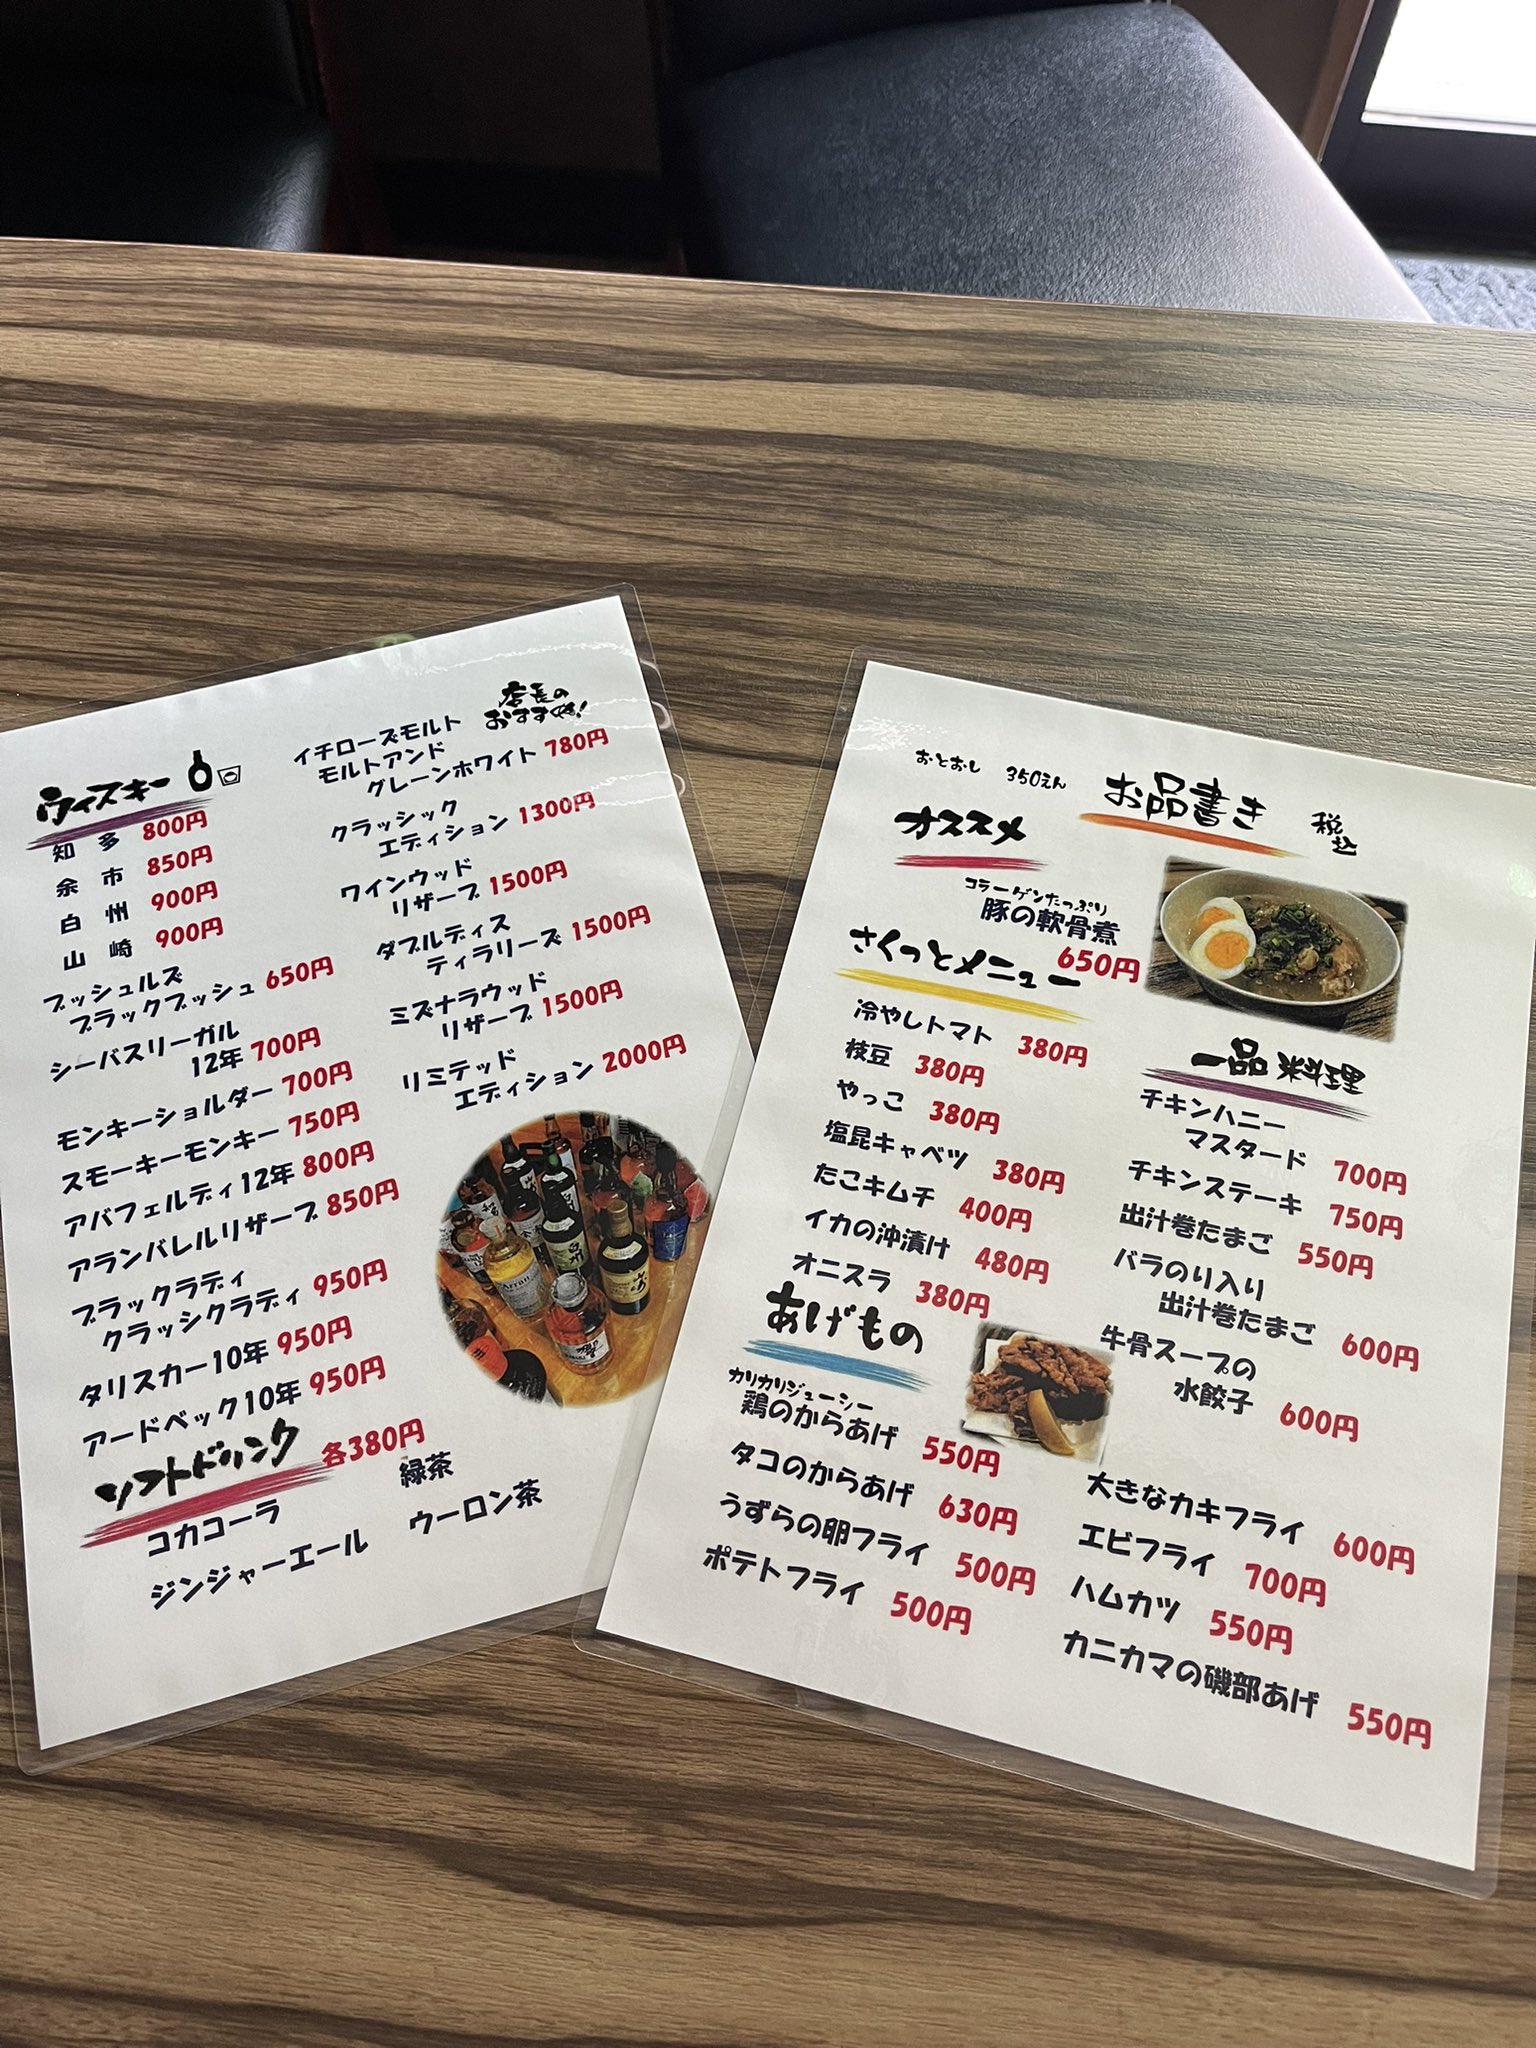 ウィスキー
知多 800円
余市 850円
白州 900円
山崎 900円
ブッシュルズ
ブラックブッシュ 650円
シーバスリーガル
12年 700円
モンキーショルダー 700円
スモーキーモンキー 750円
アバフェルディ12年 800円
アランバレルリザーブ 850円
ブラックラディ
クラッシクラディ 950円
タリスカー10年 950円
アードベック10年 950円
店長の
おすすめ!
イチローズモルト
モルトアンド
グレーンホワイト 780円
クラッシック
エディション 1300円
ワインウッド
リザーブ 1500円
ダブルディス
ティラリーズ 1500円
ミズナラウッド
リザーブ 1500円
リミテッド
エディション 2000円
ソフトドリンク 各380円
コカコーラ
緑茶
ジンジャーエール
ウーロン茶
おとおし 350えん
お品書き 税込
オススメ
コラーゲンたっぷり
豚の軟骨煮
650円
さくっとメニュー
冷やしトマト 380円
枝豆 380円
やっこ 380円
塩昆キャベツ 380円
たこキムチ 400円
イカの沖漬け 480円
オニスラ 380円
一品料理
チキンハニー
マスタード 700円
チキンステーキ 750円
出汁巻たまご 550円
バラのり入り
出汁巻たまご 600円
牛骨スープの
水餃子 600円
あげもの
カリカリジューシー
鶏のからあげ 550円
タコのからあげ 630円
うずらの卵フライ 500円
ポテトフライ 500円
大きなカキフライ 600円
エビフライ 700円
ハムカツ 550円
カニカマの磯部あげ 550円